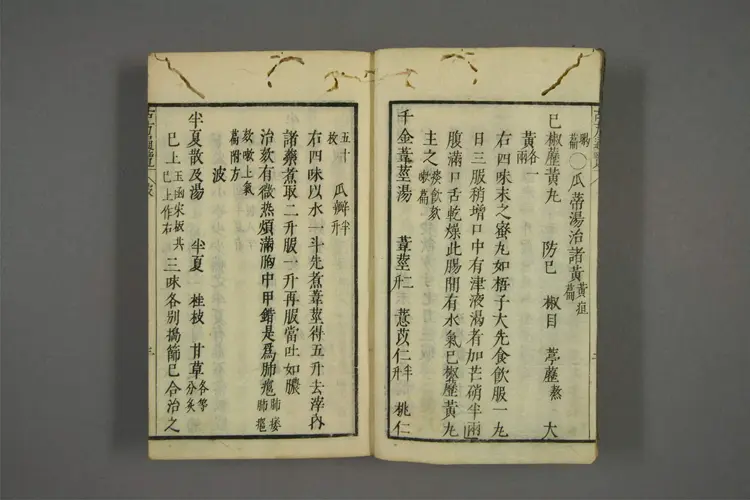 暍
篇〇瓜蒂湯治諸黃黃疸
篇
巳椒藶黃丸 防巳 椒目 葶藶熬 大
黃各一
兩
右四味末之蜜丸如梧子大先食飲服一丸
日三服稍增口中有津液渴者加芒硝半兩
腹滿口舌乾燥此腸間有水氣巳椒藶黃丸
主之痰飲欬
嗽篇
千金葦莖湯 葦莖二
升 薏苡仁半
升 桃仁
五十
枚 瓜瓣半
升
右四味以水一斗先煮葦莖得五升去滓內
諸藥煮取二升服一升再服當吐如膿
治欬有微熱煩滿胸中甲錯是爲肺癰肺痿
肺癰
欬嗽上氣
篇附方
波
半夏散及湯 半夏 桂枝 甘草各等
分炙
巳上玉函宋板共
巳上作右三味各別搗篩巳合治之